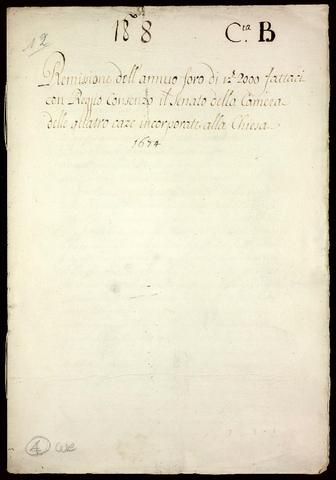 12
18 8
C.ta B
Remissione dell'annuo foro di 2000 fattaci
con Regio Consenzo il Senato della Camera
delle quattro caze incorporate alla Chiesa
1674
4